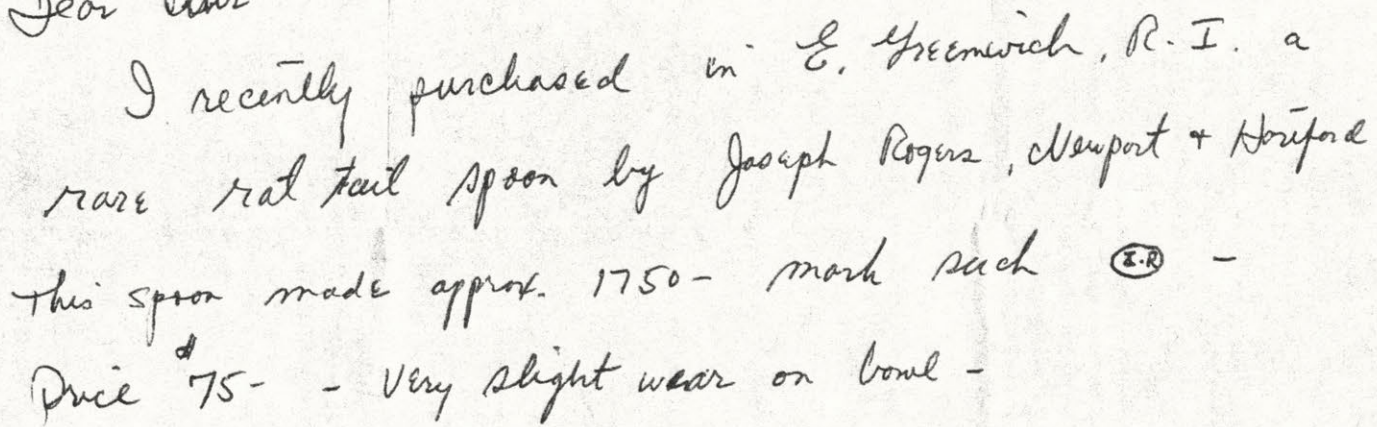 Dear
I recently purchased in E. Greenwich, R.I. a
rare rat tail spoon by Joseph Rogers, Newport + Hartford
This spoon made approx. 1750- mark such I.R -
Price $75- - Very slight wear on bowl -